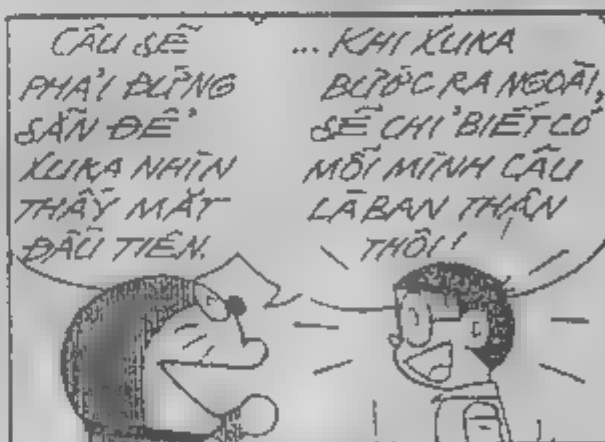 CẬU SẼ
PHẢI ĐỨNG
SẴN ĐỂ
XUKA NHÌN
THẤY MẶT
ĐẦU TIÊN.
... KHI XUKA
BƯỚC RA NGOÀI,
SẼ CHỈ BIẾT CÓ
MỖI MÌNH CẬU
LÀ BẠN THÂN
THÔI!